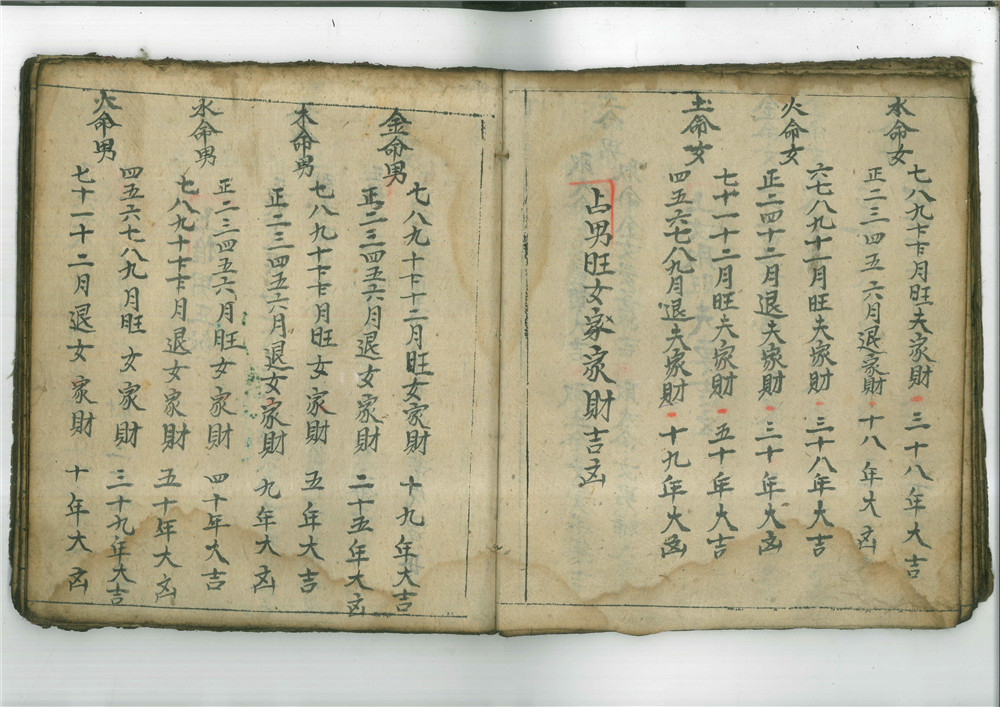 水命女 七八九十十一十二月旺夫家財 三十八年大吉
正二三四五六月退家財 十八年大㐫
火命女 六七八九十一月旺夫家財 三十八年大吉
正二四十二月退夫家財 三十年大㐫
土命女 七十一十二月旺夫家財 五十年大吉
四五六七八九月退夫家財 十九年大㐫
占男旺女家家財吉㐫
金命男 七八九十十一十二月旺女家財 十九年大吉
正二三四五六月退女家財 二十五年大㐫
木命男 七八九十十一十二月旺女家財 五年大吉
正二三四五六月退女家財 九年大㐫
水命男 正二三四五六月旺女家財 四十年大吉
七八九十十一十二月退女家財 五十年大㐫
火命男 四五六七八九月旺女家財 三十九年大吉
七十一十二月退女家財 十年大㐫